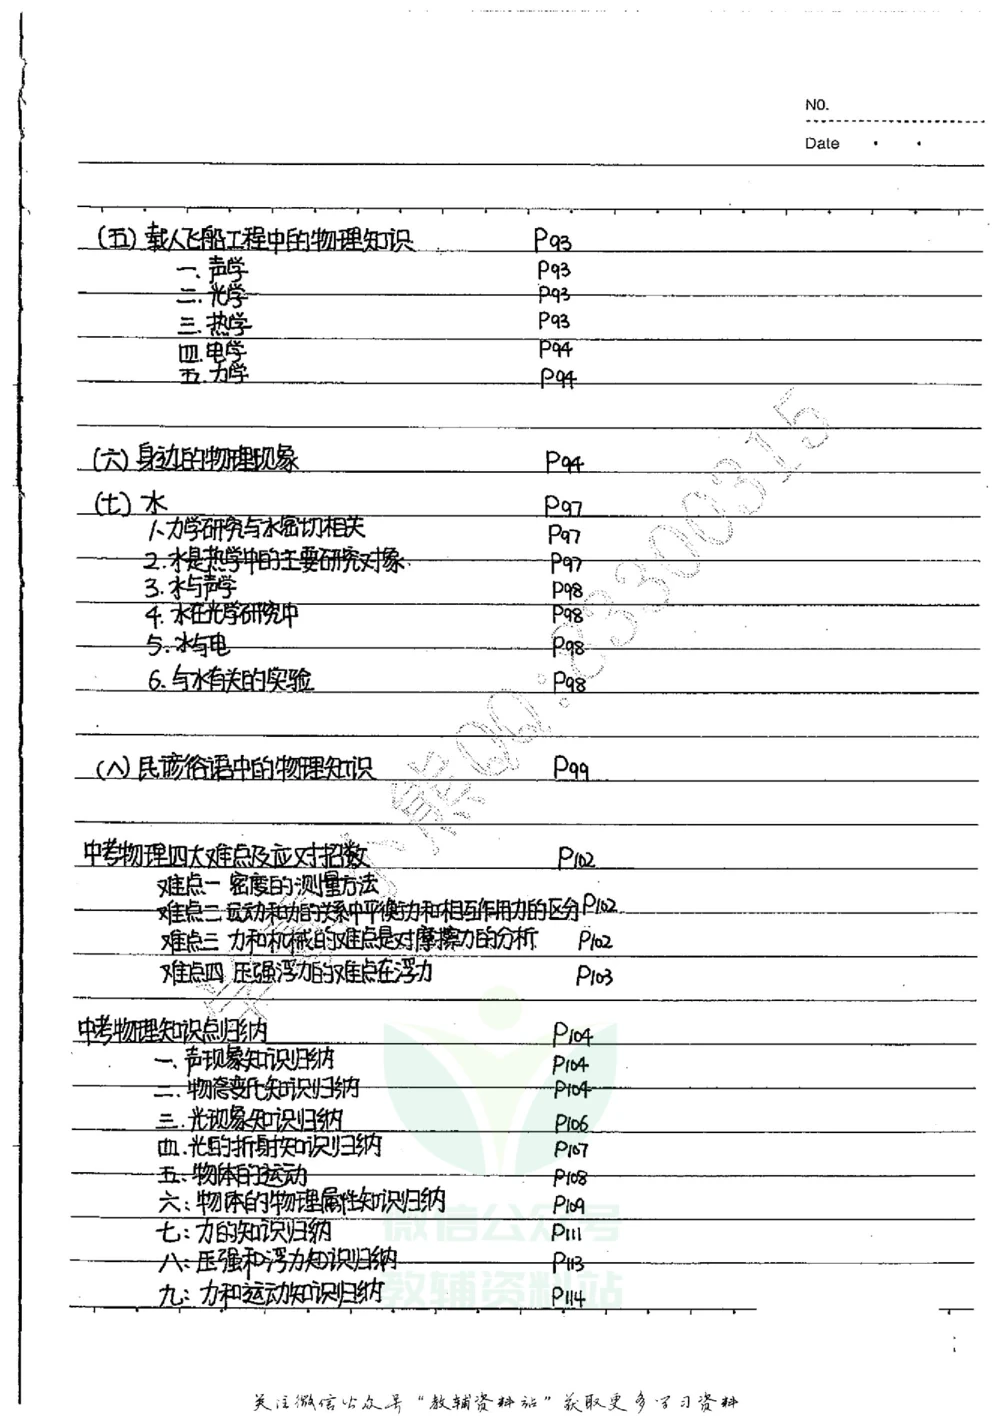 NO.
Date
(五) 载人飞船工程中的物理知识 P93
一. 声学 P93
二. 光学 P93
三. 热学 P93
四. 电学 P94
五. 力学 P94
(六) 身边的物理现象 P94
(七) 水 P97
1. 力学研究与水密切相关 P97
2. 水是热学中的主要研究对象. P97
3. 水与声学 P98
4. 水在光学研究中 P98
5. 水与电 P98
6. 与水有关的实验 P98
(八) 民谚俗语中的物理知识 P99
中考物理四大难点及应对招数 P102
难点一 密度的测量方法
难点二 运动和力的关系中平衡力和相互作用力的区分 P102
难点三 力和机械的难点是对摩擦力的分析 P102
难点四 压强浮力的难点在浮力 P103
中考物理知识点归纳 P104
一. 声现象知识归纳 P104
二. 物态变化知识归纳 P104
三. 光现象知识归纳 P106
四. 光的折射知识归纳 P107
五: 物体的运动 P108
六: 物体的物理属性知识归纳 P109
七: 力的知识归纳 P111
八: 压强和浮力知识归纳 P113
九: 力和运动知识归纳 P114
熊QQ:83300315
微信公众号
教辅资料站
关注微信公众号“教辅资料站”获取更多学习资料